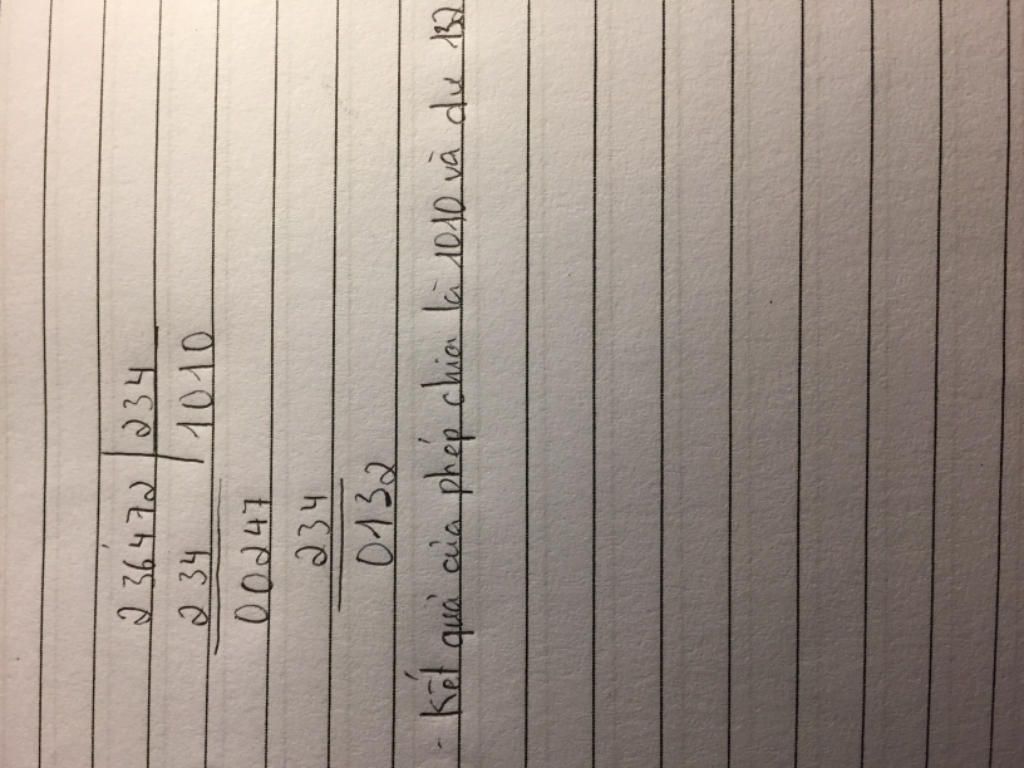 236472 | 234
234 | 1010
00247
234
0132
- Kết quả của phép chia là 1010 và dư 132